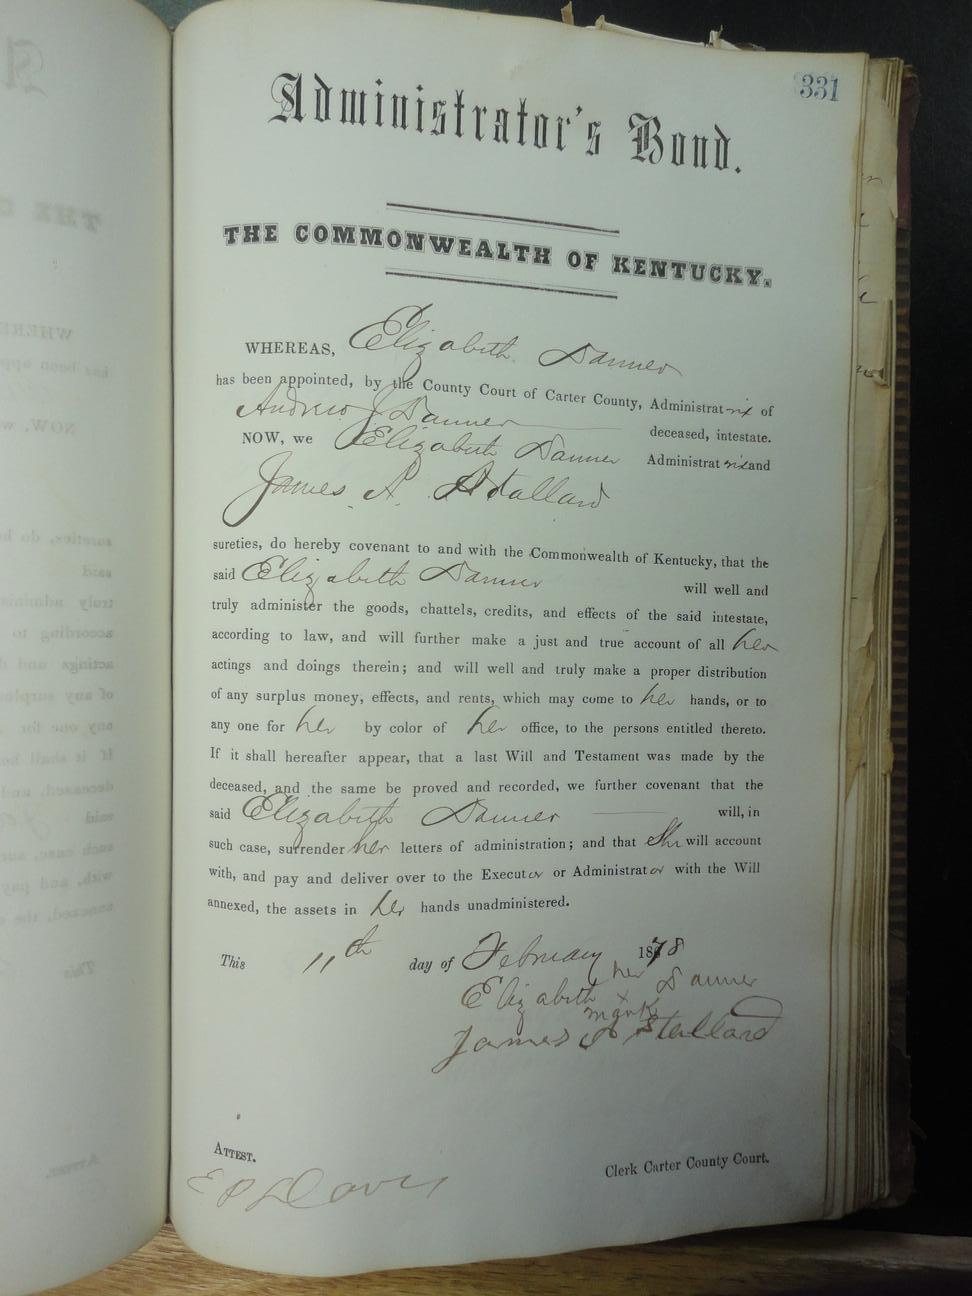 331
Administrator's Bond.
THE COMMONWEALTH OF KENTUCKY.
WHEREAS, Elizabeth Danner
has been appointed, by the County Court of Carter County, Administratrix of
Andrew J Danner deceased, intestate.
NOW, we Elizabeth Danner Administratrix and
James A. Stallard
sureties, do hereby covenant to and with the Commonwealth of Kentucky, that the
said Elizabeth Danner will well and
truly administer the goods, chattels, credits, and effects of the said intestate,
according to law, and will further make a just and true account of all her
actings and doings therein; and will well and truly make a proper distribution
of any surplus money, effects, and rents, which may come to her hands, or to
any one for her by color of her office, to the persons entitled thereto.
If it shall hereafter appear, that a last Will and Testament was made by the
deceased, and the same be proved and recorded, we further covenant that the
said Elizabeth Danner will, in
such case, surrender her letters of administration; and that She will account
with, and pay and deliver over to the Executor or Administrator with the Will
annexed, the assets in her hands unadministered.
This 11th day of February 1878
Elizabeth her x mark Danner
James A Stallard
ATTEST.
Clerk Carter County Court.
E P Davis